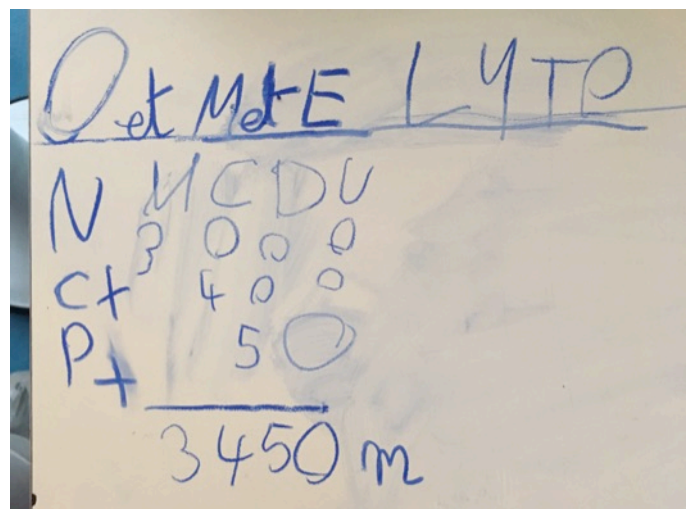 O et M et E LYTO
N M C D U
3 0 0 0
C + 4 0 0
P + 5 0
3450 m